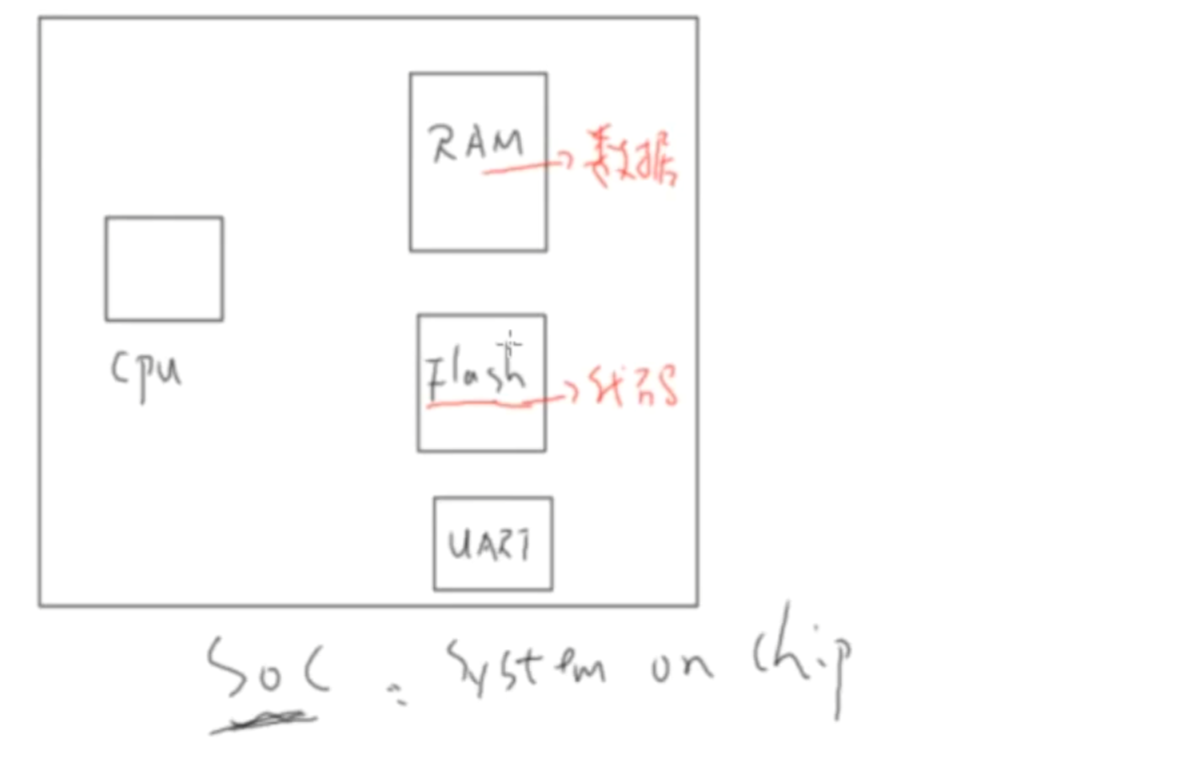 RAM
数据
CPU
Flash
代码
UART
SOC : System on chip